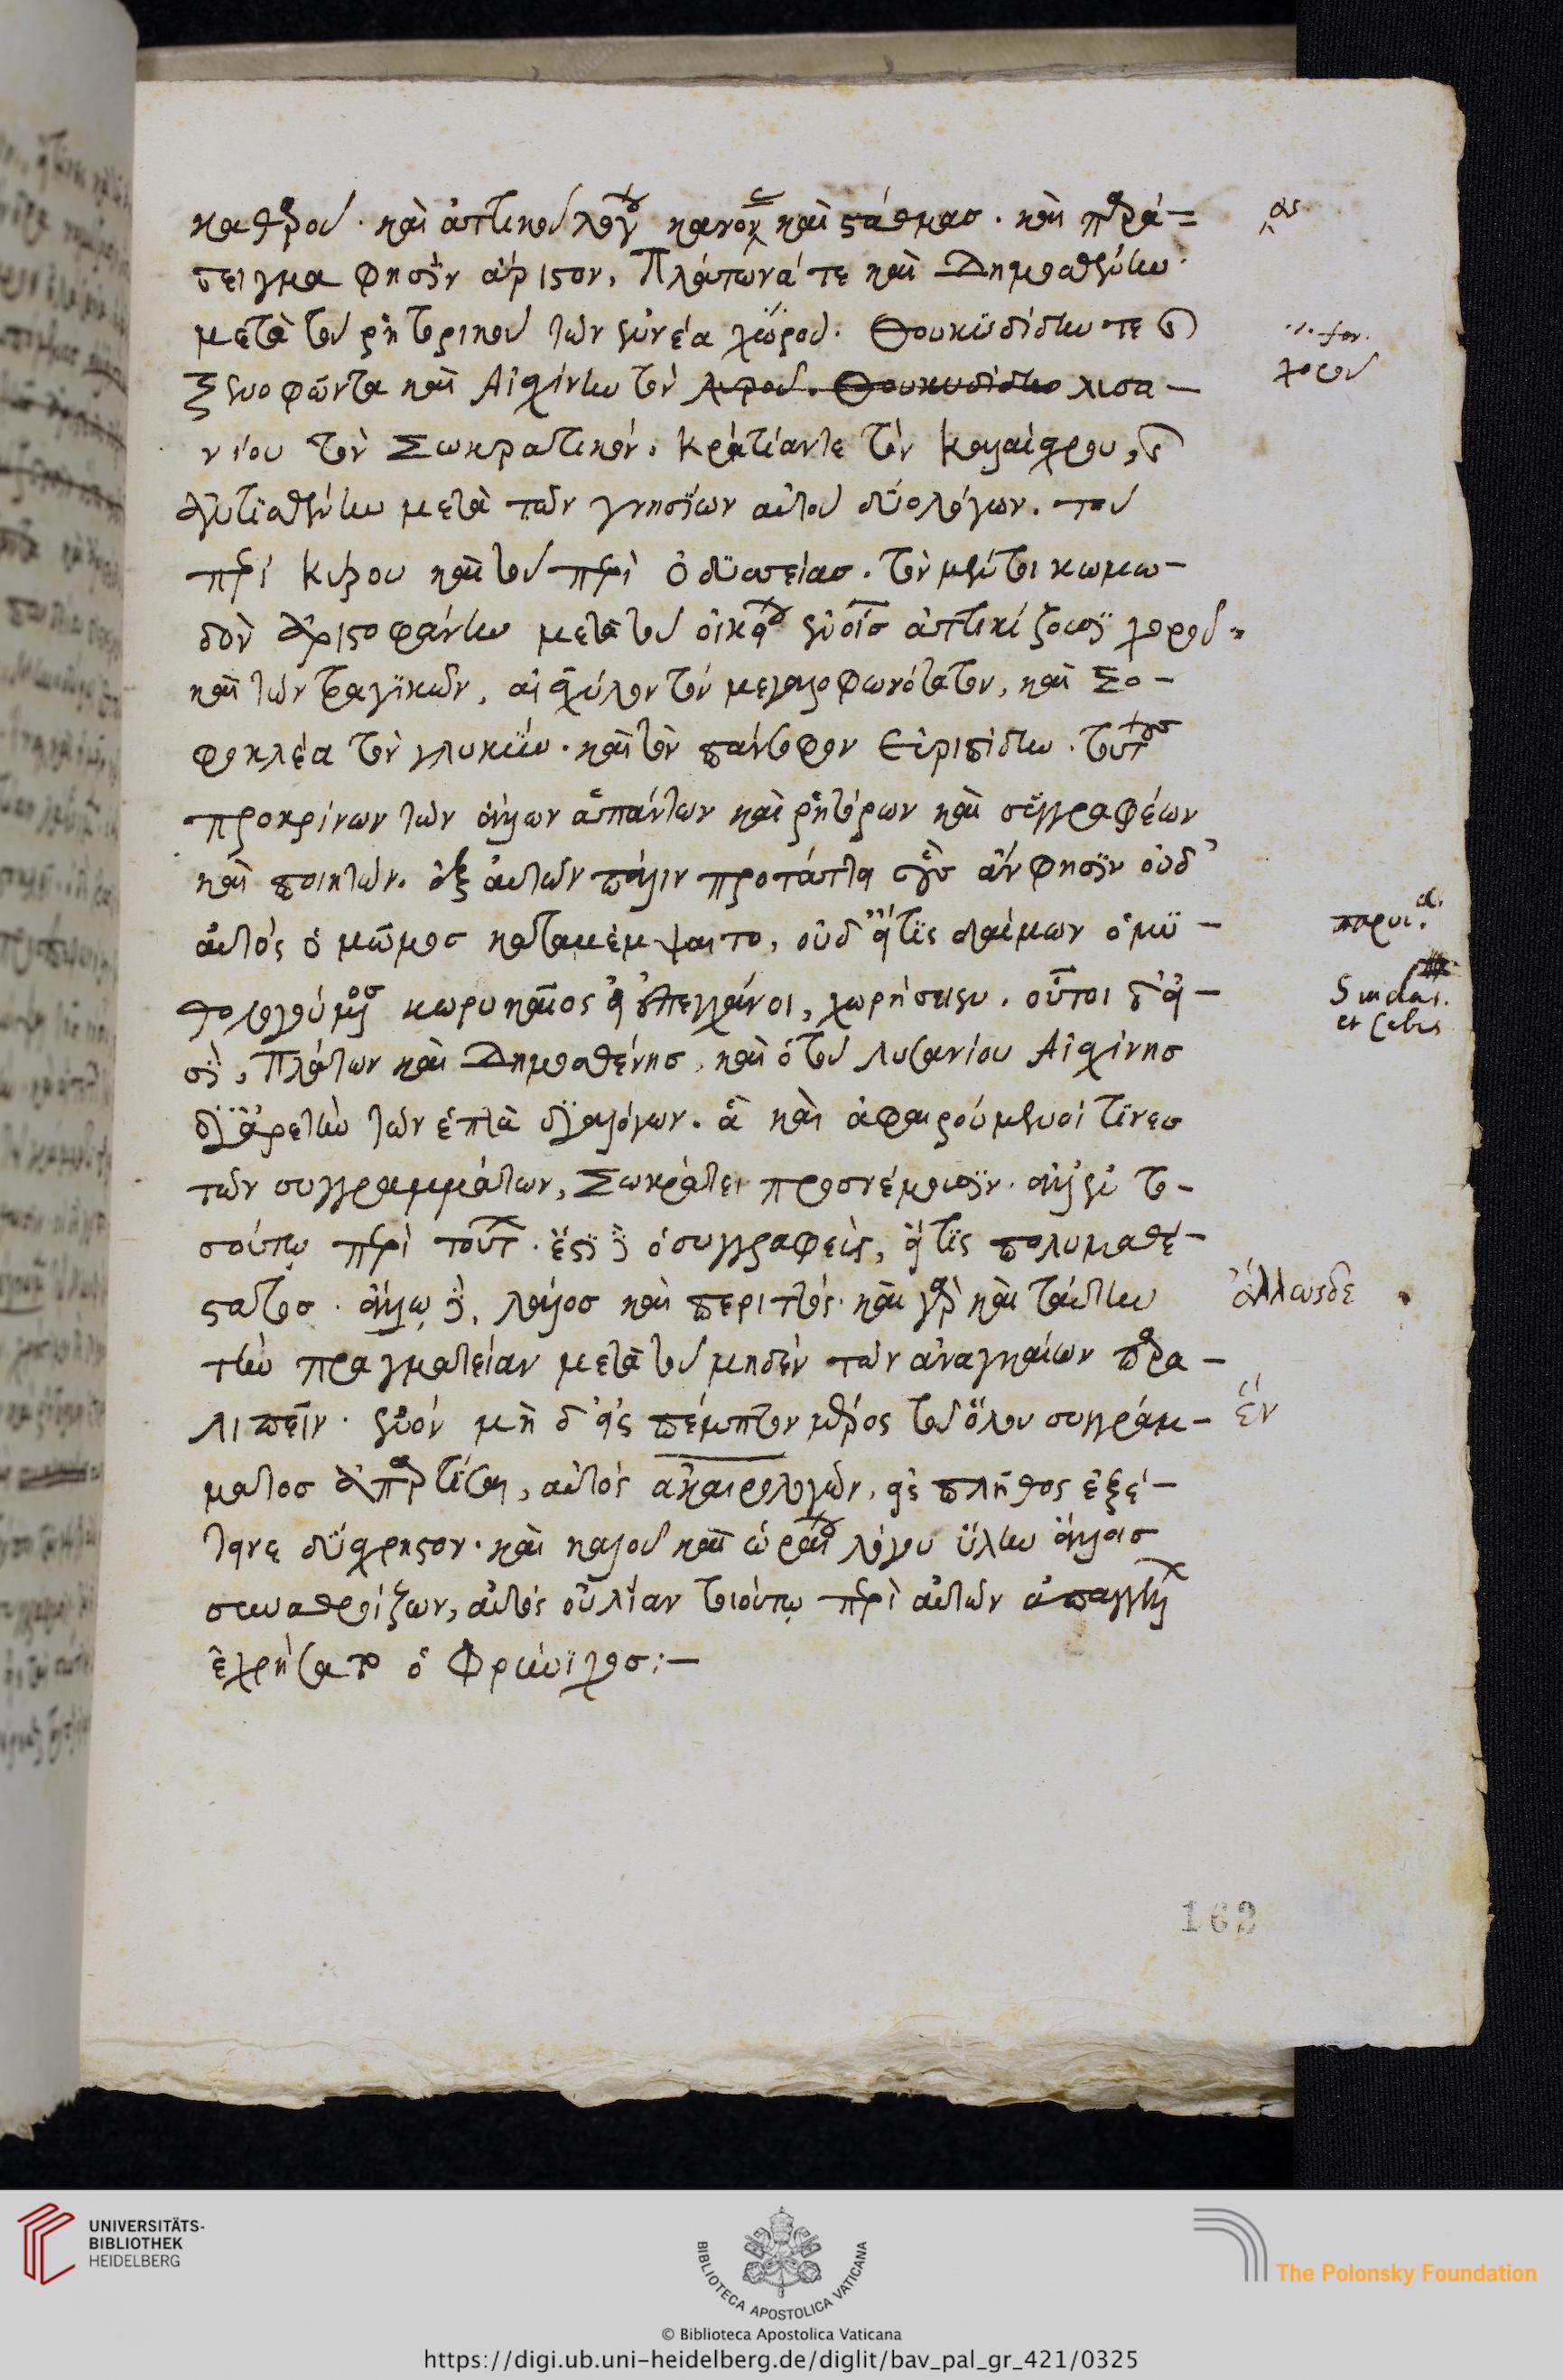 καθαροῦ. καὶ ἀττικοῦ λόγου κανον καὶ στάθμας. καὶ παρά=
δειγμα φησὶν ἄριστον, Πλάτωνά τε καὶ Δημοσθένην
μετὰ τοῦ ῥητορικοῦ τῶν ἐννέα χώρου. Θουκυδίδην τε καὶ
Ξενοφῶντα καὶ Αἰσχίνην τὸν Θουκυδίδην λισα-
νίου τὸν Σωκρατικόν. Κρατίαντε τὸν Καλαίσχρου, καὶ
Ἀντισθένην μετὰ τῶν γνησίων αὐτοῦ δύο λόγων. τοῦ
περὶ Κύρου καὶ τοῦ περὶ ὀδυσσείας. τὸν μέντοι κωμω-
δὸν Ἀριστοφάνην μετὰ τοῦ οἰκείου ἐν οἷς ἀττικίζουσι χοροῦ.
καὶ τῶν τραγικῶν, αἰσχύλον τὸν μεγαλοφωνότατον, καὶ Σο-
φοκλέα τὸν γλυκὺν. καὶ τὸν πάνσοφον Εὐριπίδην. τούτους
προκρίνων τῶν ἄλλων ἁπάντων καὶ ῥητόρων καὶ συγγραφέων
καὶ ποιητῶν. ἐξ αὐτῶν πάλιν προτάττει οὓς ἂν φησὶν οὐδ'
αὐτὸς ὁ μῶμος καταμέμψαιτο, οὐδ' εἴ τις δαίμων ὁ μυ-
θολογούμενος κωρυκαῖος εἰ τυγχάνοι, χωρήσειεν. οὗτοι δ' εἰ-
σὶ, Πλάτων καὶ Δημοσθένης, καὶ ὁ τοῦ Λυσανίου Αἰσχίνης
δι' ἀρετὴν τῶν ἑπτὰ διαλόγων. ἃ καὶ ἀφαιρούμενοί τινες
τῶν συγγραμμάτων, Σωκράτει προσνέμουσιν. ἀλλ' ἐν το-
σούτῳ περὶ τούτων. ἔστι δὲ ὁ συγγραφεὺς, εἴ τις πολυμαθέ-
στατος. ἄλλῳ δὲ, λάλος καὶ περιττός. καὶ γὰρ καὶ ταύτην
τὴν πραγματείαν μετὰ τοῦ μηδὲν τῶν ἀναγκαίων παρα-
λιπεῖν. ἐνὸν μὴ δ' εἰς πέμπτον μέρος τοῦ ὅλου συγγράμ-
ματος ἀπαρτίσαι, αὐτὸς ἀκαιρολογῶν, εἰς πλῆθος ἐξέ-
τεινε δύσχρηστον. καὶ καλοῦ καὶ ὡραίου λόγου ὕλην ἄλλοις
συναθροίζων, αὐτὸς οὐ λίαν τοιούτῳ περὶ αὐτῶν ἀπαγγέλλων
ἐχρήσατο ὁ Φρύνιχος:-
ας
χοροῦ
παροι.
Suidas.
et Celeb
ἄλλωςδε
ἐν
162
UNIVERSITÄTS-
BIBLIOTHEK
HEIDELBERG
BIBLIOTECA APOSTOLICA VATICANA
The Polonsky Foundation
© Biblioteca Apostolica Vaticana
https://digi.ub.uni-heidelberg.de/diglit/bav_pal_gr_421/0325